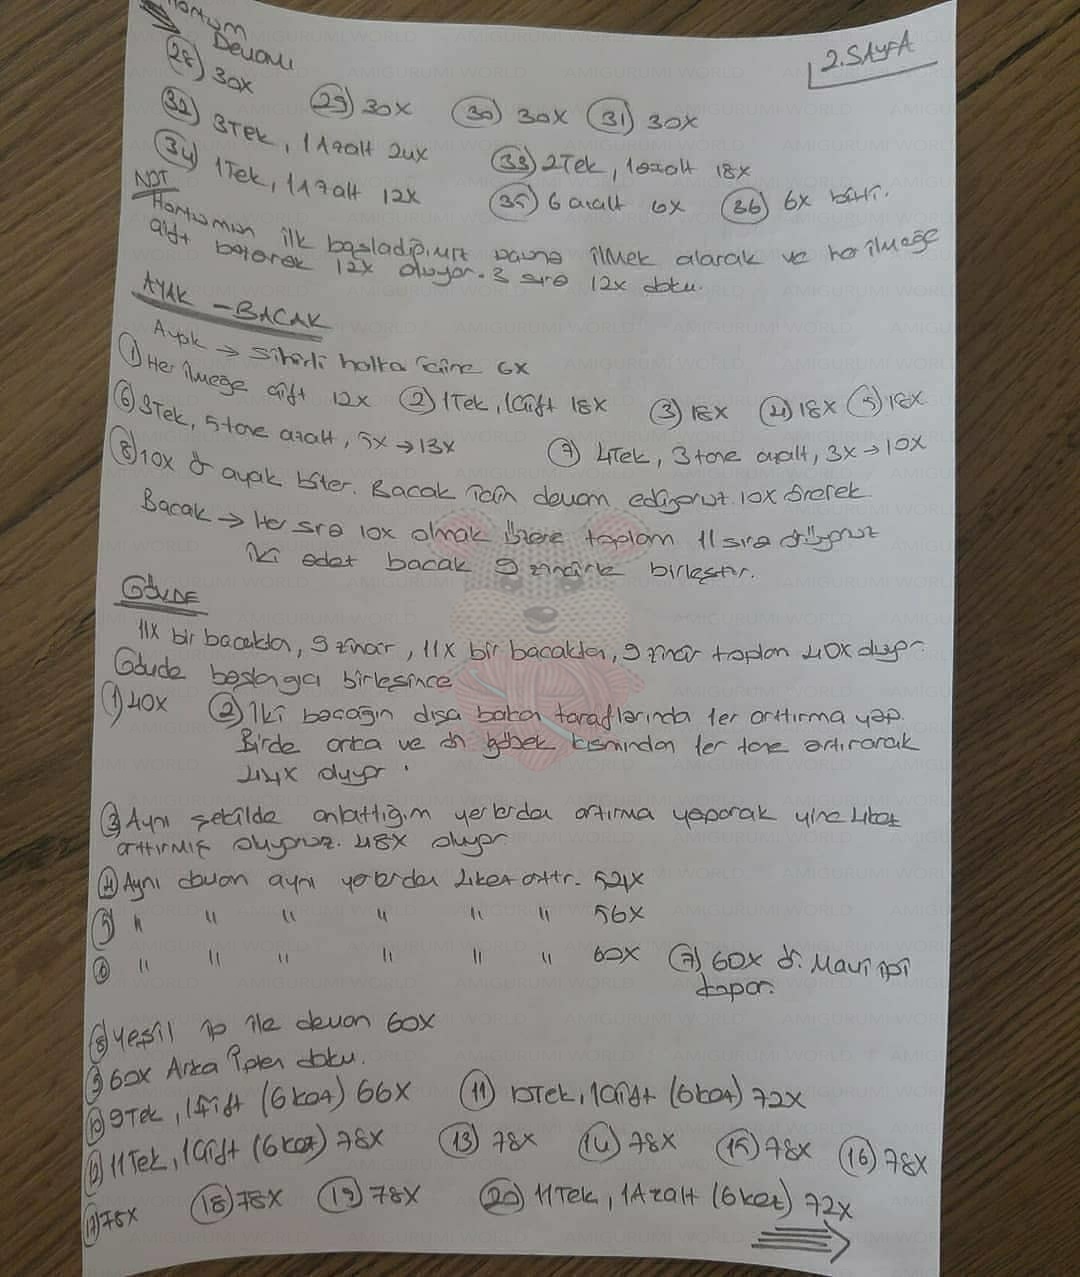 Hortum
Devamı
2.SAYFA
(28) 30X (29) 30X (30) 30X (31) 30X
(32) 3Tek, 1Azalt 24X (33) 2Tek, 1azalt 18X
(34) 1Tek, 1Azalt 12X (35) 6 azalt 6X (36) 6X bitti.
NOT
Hortumun ilk başladığımız ilmek alarak ve her ilmeğe
çift batarak 12X oluyor. 3 sıra 12X doku.
AYAK - BACAK
Ayak → Sihirli halka içine 6X
(1) Her ilmeğe çift 12X (2) 1Tek, 1Çift 18X (3) 18X (4) 18X (5) 18X
(6) 3Tek, 5 tane azalt, 5X → 13X (7) 4Tek, 3 tane azalt, 3X → 10X
(8) 10X ör ayak biter. Bacak için devam ediyoruz. 10X örerek
Bacak → Her sıra 10X olmak üzere toplam 11 sıra örüyoruz
İki adet bacak 9 zincirle birleştir.
GÖVDE
11X bir bacaktan, 9 zincir, 11X bir bacaktan, 9 zincir toplam 40X oluyor.
Gövde başlangıcı birleşince
(1) 40X (2) İki bacağın dışa bakan taraflarından 1er arttırma yap.
Birde arka ve ön göbek kısmından 1er tane artırarak
44X oluyor.
(3) Aynı şekilde anlattığım yerlerden artırma yaparak yine 4 kez
arttırmış oluyoruz. 48X oluyor
(4) Aynı devam aynı yerlerden 4 kez arttır. 52X
(5) " " " " " " 56X
(6) " " " " " " 60X (7) 60X ör. Mavi ipi
kapar.
(8) Yeşil ip ile devam 60X
(9) 60X Arka İpten doku.
(10) 9Tek, 1Çift (6 kez) 66X (11) 10Tek, 1Çift (6 kez) 72X
(12) 11Tek, 1Çift (6 kez) 78X (13) 78X (14) 78X (15) 78X (16) 78X
(17) 78X (18) 78X (19) 78X (20) 11Tek, 1Azalt (6 kez) 72X